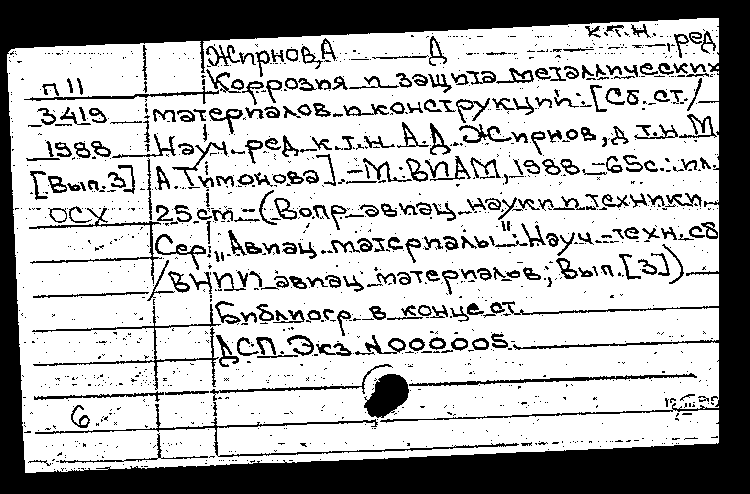 к.т.н.
Жирнов, А Д , ред
П 11 Коррозия и защита металлических
3419 материалов и конструкций: [Сб. ст./
1988 Науч. ред. к.т.н. А.Д. Жирнов, д.т.н. М.
[Вып. 3] А. Тимонова]. – М.: ВИАМ, 1988. – 65с.: ил.
ОСХ 25 cm – (Вопр. авиац. науки и техники.
Сер. „Авиац. материалы": Науч.-техн. сб
/ВНИИ авиац. материалов; Вып. [3])
Библиогр. в конце ст.
ДСП. Экз. N000005.
6